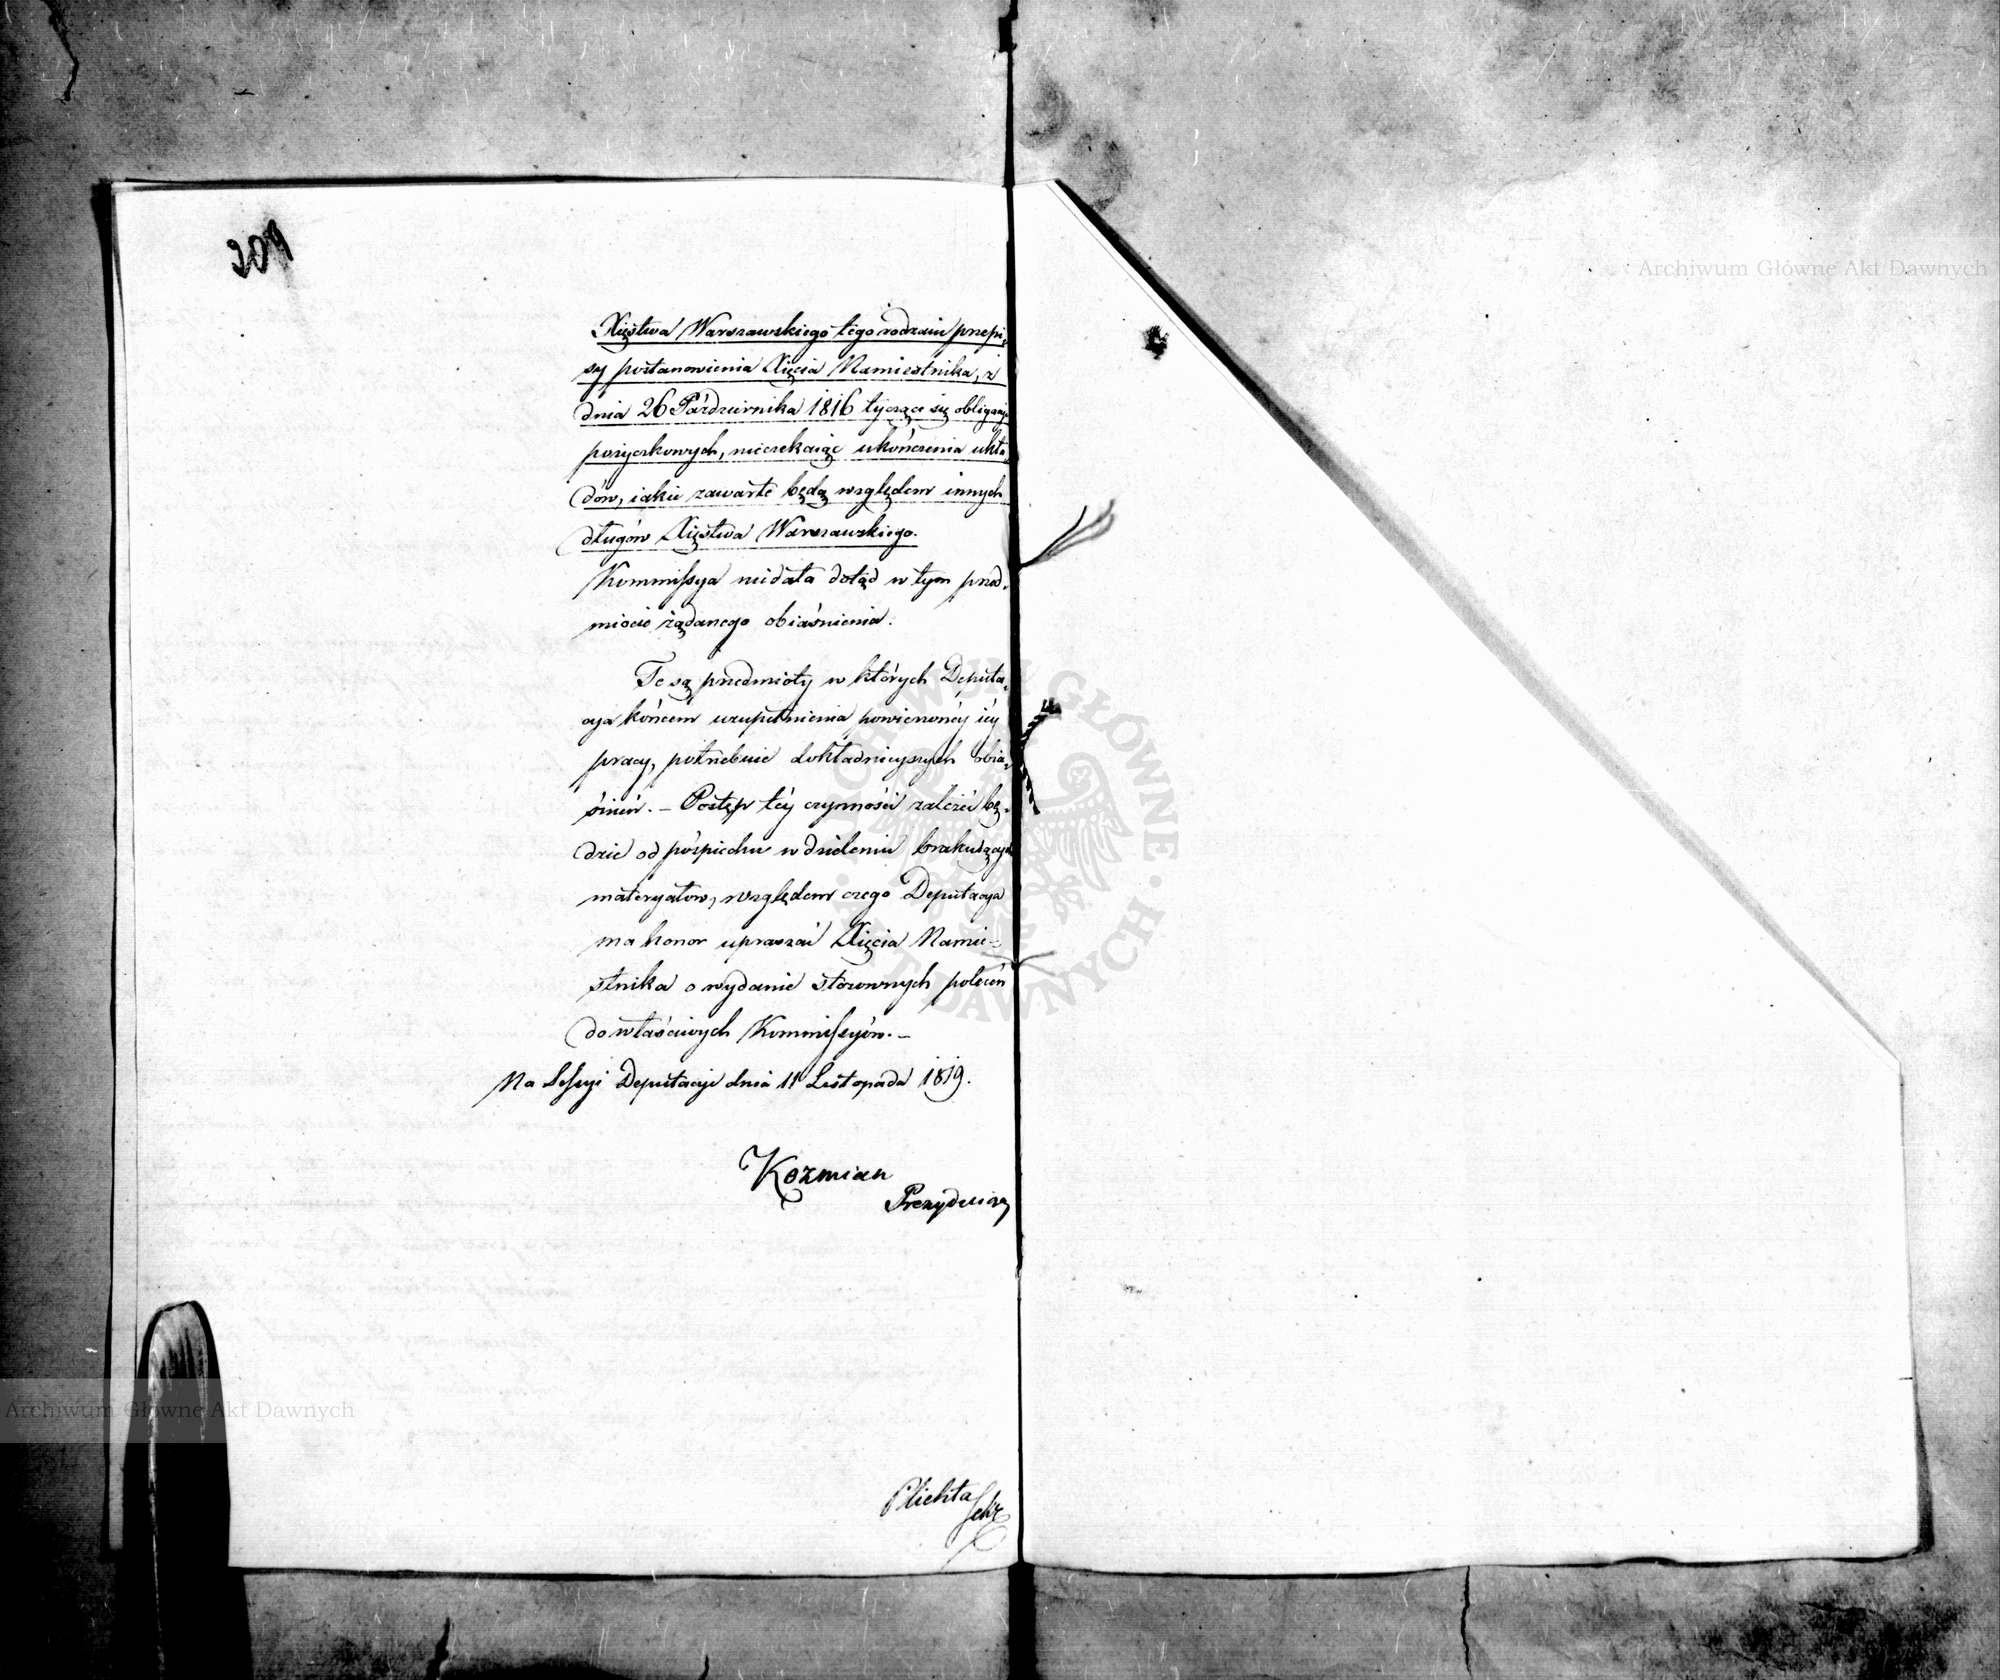 Xięstwa Warszawskiego tego rodzaiu przepi-
sy postanowienia Xięcia Namiestnika, z
dnia 26 Października 1816 tyczące się obligacyi
pożyczkowych, nieczekaiąc ukończenia ukła-
dów, iakie zawarte będą względem innych
długów Xięstwa Warszawskiego.
Kommissya niedała dotąd w tym przed-
miocie żądanego obiaśnienia.
Te są przedmioty w których Deputa-
cya końcem uzupełnienia powierzonéy iéy
pracy, potrzebuie dokładnieyszych obia-
śnień. – Postęp téy czynności zależeć bę-
dzie od pośpiechu w dzieleniu brakuiących
materyałów, względem czego Deputacya
ma honor upraszać Xięcia Namie-
stnika o wydanie stosownych poleceń
do właściwych Kommissyów. –
Na Sessyi Deputacyi dnia 11 Listopada 1819.
Kozmian
Prezyduiący
Plichta Sekr
Archiwum Główne Akt Dawnych
Archiwum Główne Akt Dawnych
ARCHIWUM GŁÓWNE AKT DAWNYCH